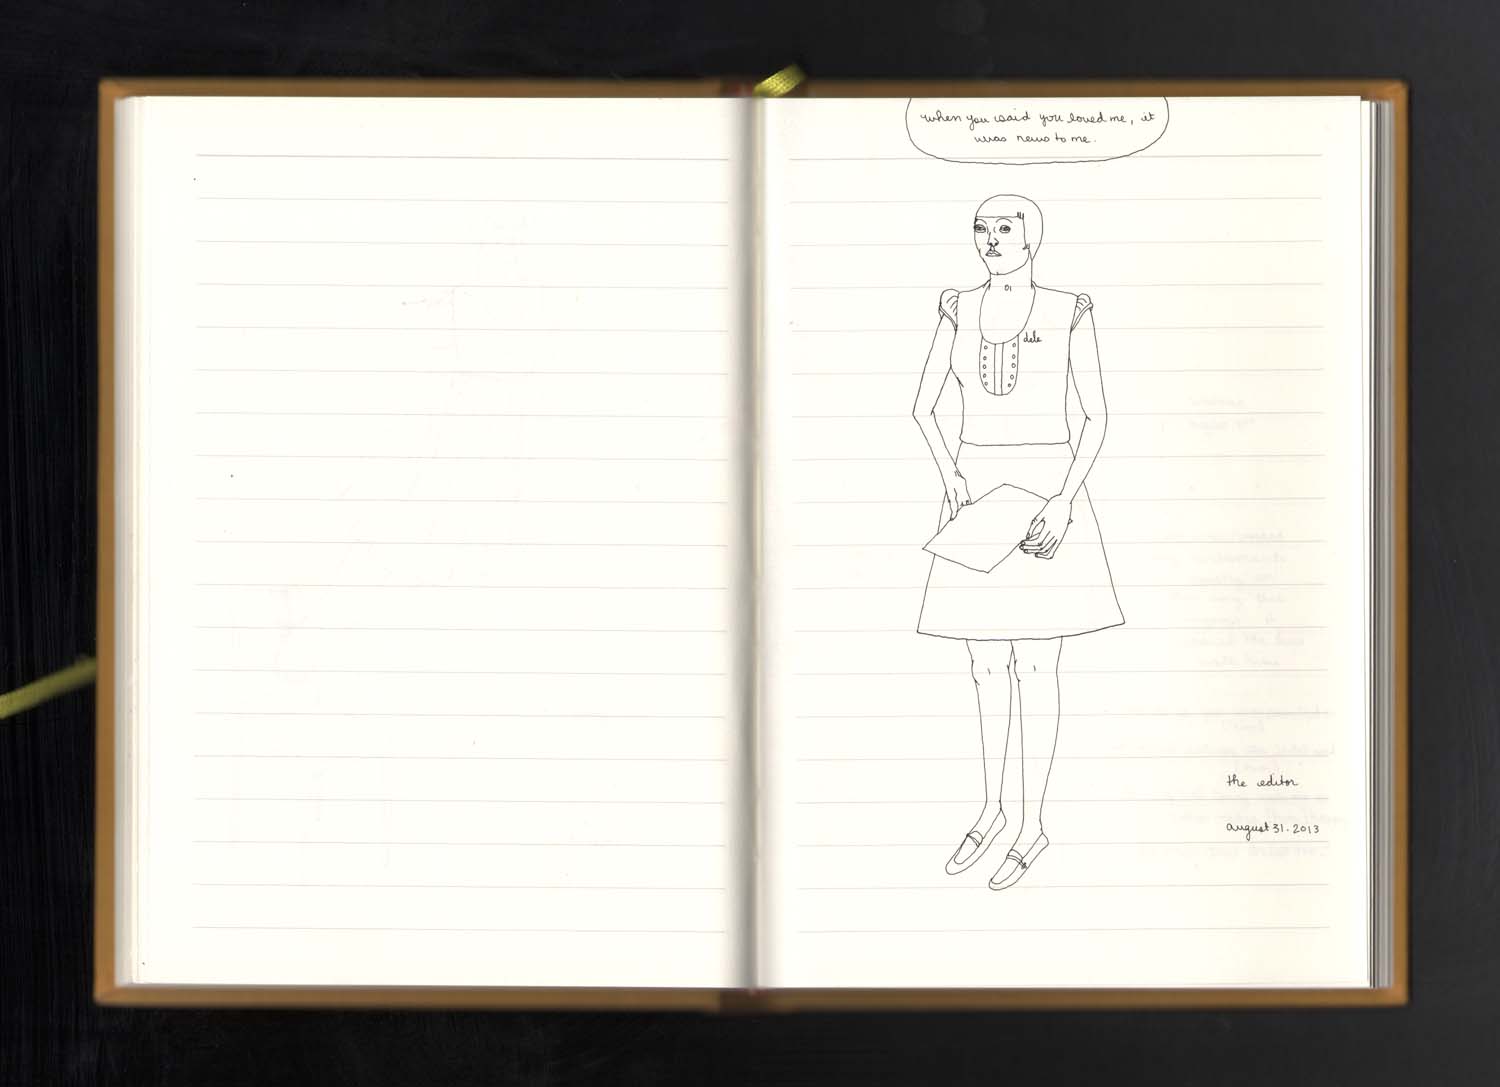 when you said you loved me, it
was news to me.
dele
the editor
august 31. 2013